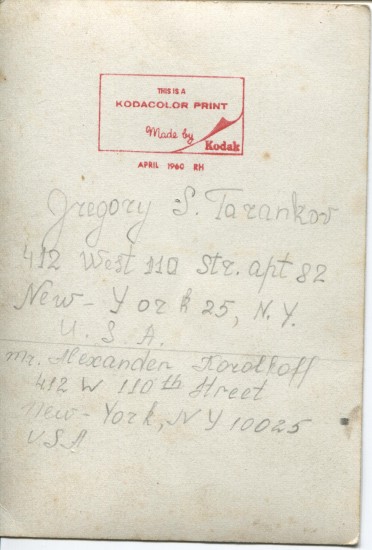 THIS IS A
KODACOLOR PRINT
Made by
Kodak
APRIL 1960 RH
Gregory S. Tarankov
412 West 110 Str. apt 82
New-York 25, N.Y.
U.S.A.
Mr. Alexander
412 W 110th Street
New-York, NY 10025
USA